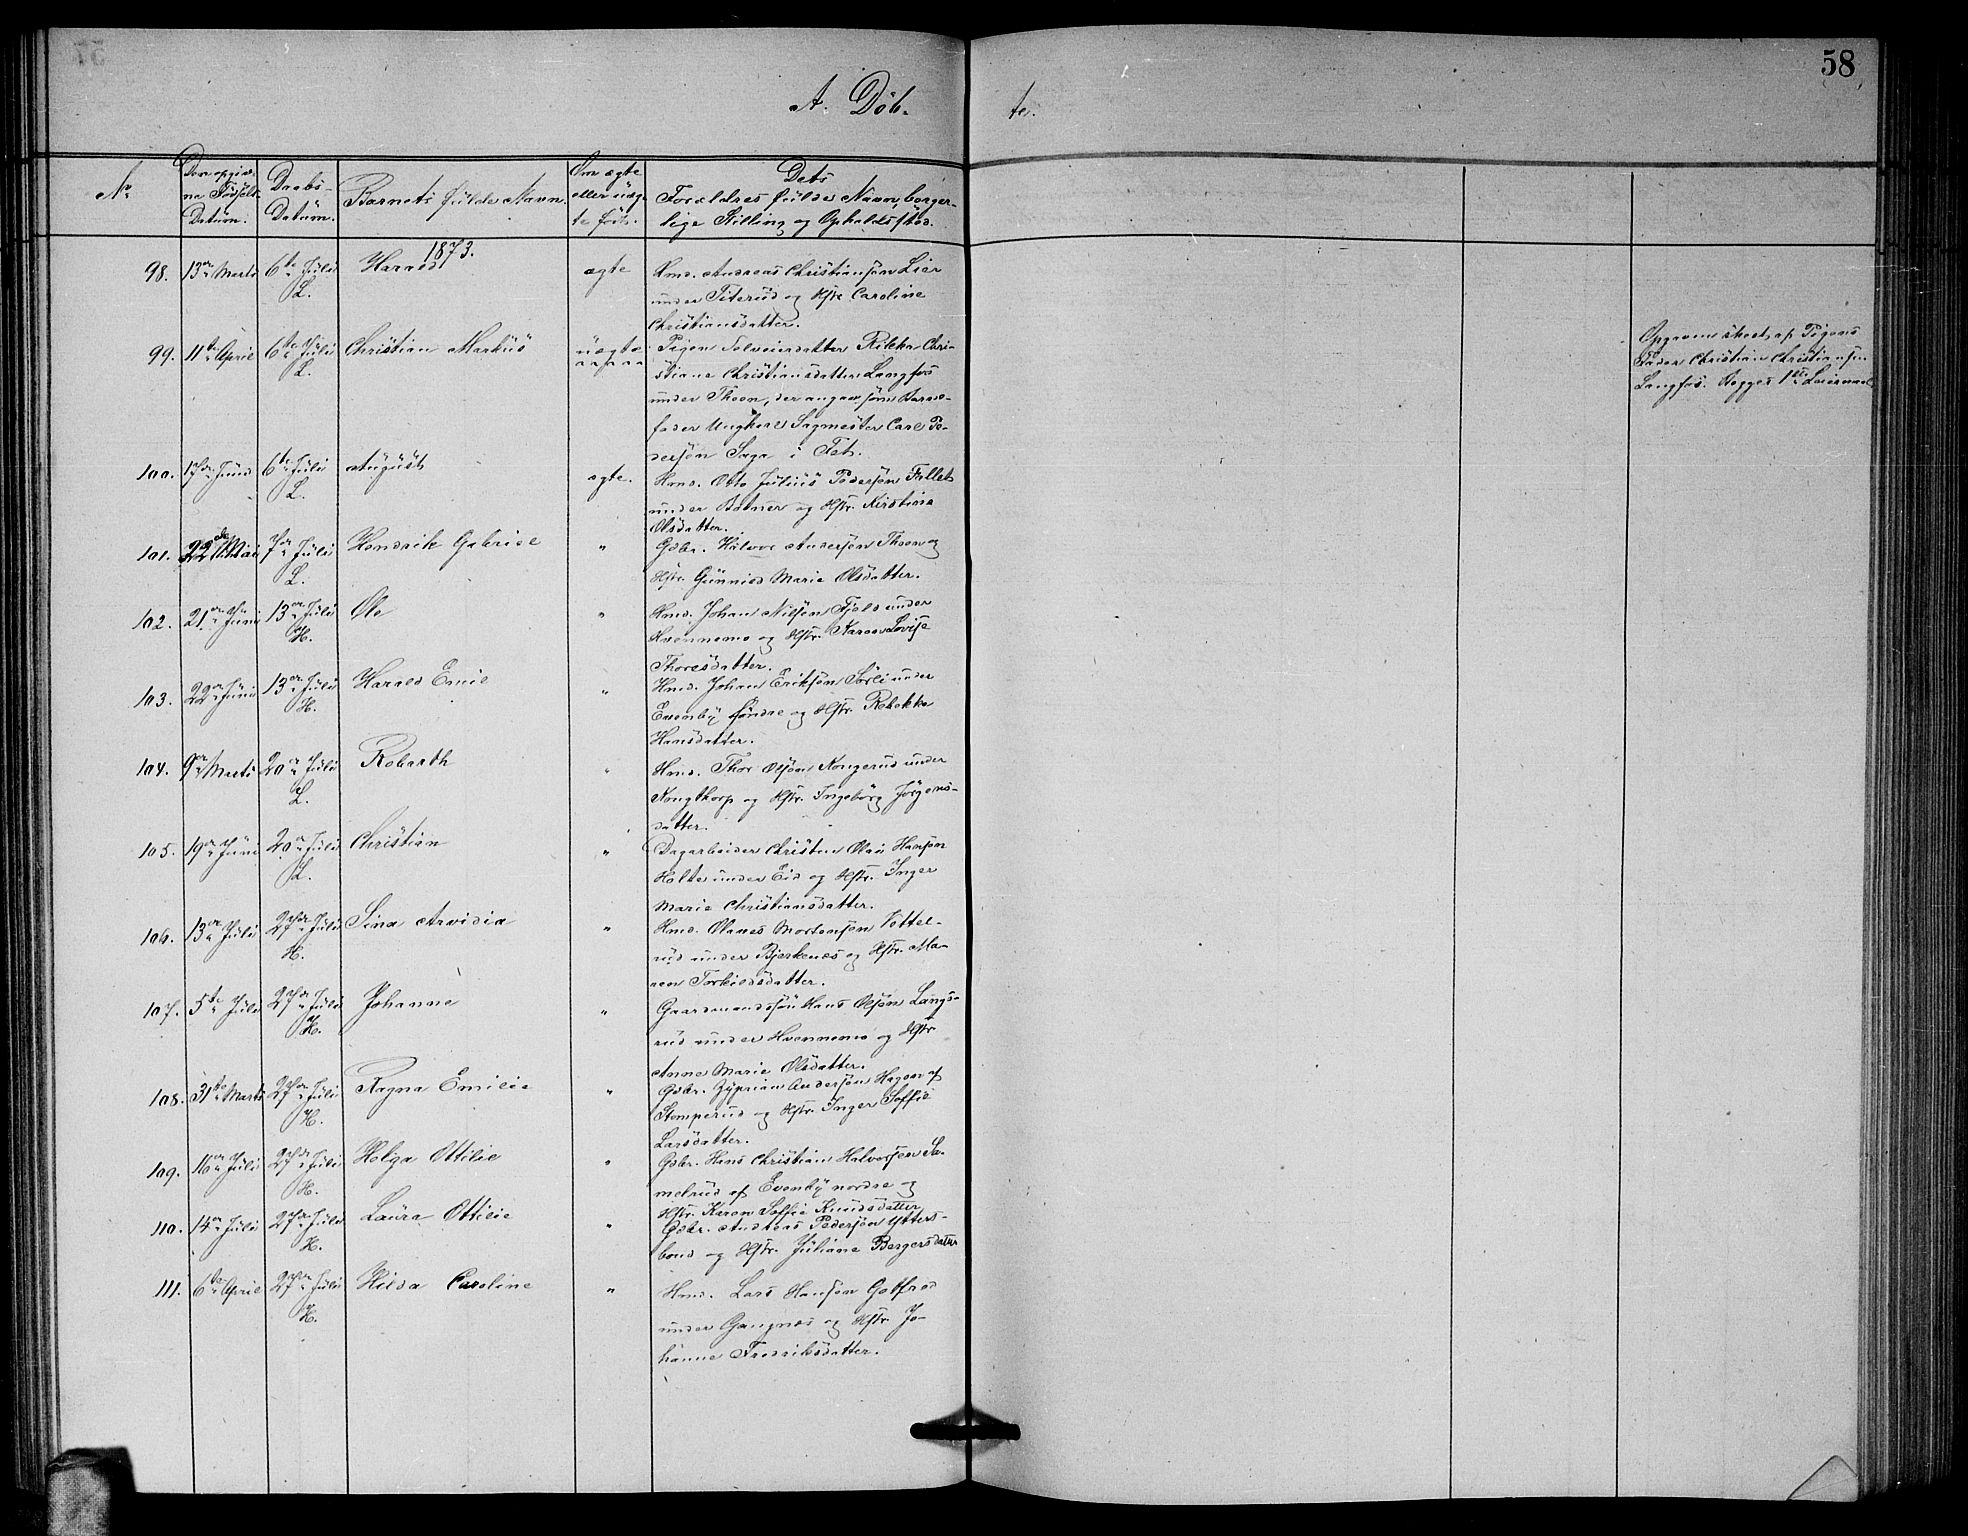 58
A. Döb-
te.
No
Den opgiv-
ne Fødsels-
Datum.
Daabs-
Datum.
Barnets fulde Navn.
Om ægte
eller uæg-
te født.
Dets
Forældres fulde Navn, borger-
lige Stilling og Opholdssted.
1873.
98. 13de Marts 6te Juli L. Harald ægte Hmd. Andreas Christiansøn Lier
under Titerud og Hstr. Caroline
Christiansdatter.
99. 11te April 6te Juli L. Christian Markus uægte Pigen Selveierdatter Rikka Chri-
stiane Christiansdatter Langfos
under Thoen, der angav som Barne-
fader Ungkarl Sagmester Carl Pe-
dersøn Saga i Fet.
Opgaven skeet af Pigens
Fader Christian Christiansen
Langfos. Begges 1ste Leiermaal
100. 17de Juni 6te Juli L. August ægte. Hmd. Otto Julius Pedersøn Fallet
under Botner og Hstr. Kirstine
Olsdatter.
101. 22de Mai 7de Juli L. Hendrik Gabriel " Gdbr. Halvor Andersøn Thoen og
Hstr. Gunnild Marie Olsdatter.
102. 21de Juni 13de Juli H. Ole " Hmd. Johan Nilsøn Fjeld under
Hvennemo og Hstr. Karen Lovise
Thoresdatter.
103. 22de Juni 13de Juli H. Harald Emil " Hmd. Johan Eriksøn Sørli under
Evenby søndre og Hstr. Rebekka
Hansdatter.
104. 9de Marts 20de Juli L. Robarth " Hmd. Thor Olsøn Kongerud under
Kongthorp og Hstr. Ingeborg Jørgens-
datter.
105. 19de Juni 20de Juli L. Christian " Dagarbeider Christen Olai Hansøn
Holter under Eid og Hstr. Inger
Marie Christiansdatter.
106. 13de Juli 27de Juli H. Lina Arvidia " Hmd. Olanes Mortensøn Vottel-
rud under Bjerkenes og Hstr. Ma-
ren Torkildsdatter.
107. 5te Juli 27de Juli H. Johanne " Gaardmandssøn Hans Olsøn Langs-
rud under Hvennemo og Hstr
Anne Marie Olsdatter.
108. 31te Marts 27de Juli H. Ragna Emilie " Gdbr. Zyprian Andersøn Hagen af
Stomperud og Hstr. Inger Soffie
Larsdatter.
109. 16de Juli 27de Juli H. Helga Ottilie " Gdbr. Hans Christian Halvorsen Sa-
melrud af Evenby nordre og
Hstr. Karen Soffie Knudsdatter
110. 14de Juli 27de Juli H. Laura Ottilie " Gdbr. Andreas Pedersøn Ytters-
boud og Hstr. Juliane Bergersdatter
111. 6te April 27de Juli H. Hilda Caroline " Hmd. Lars Hansøn Gotfred
under Gangnæs og Hstr. Jo-
hanne Fredriksdatter.